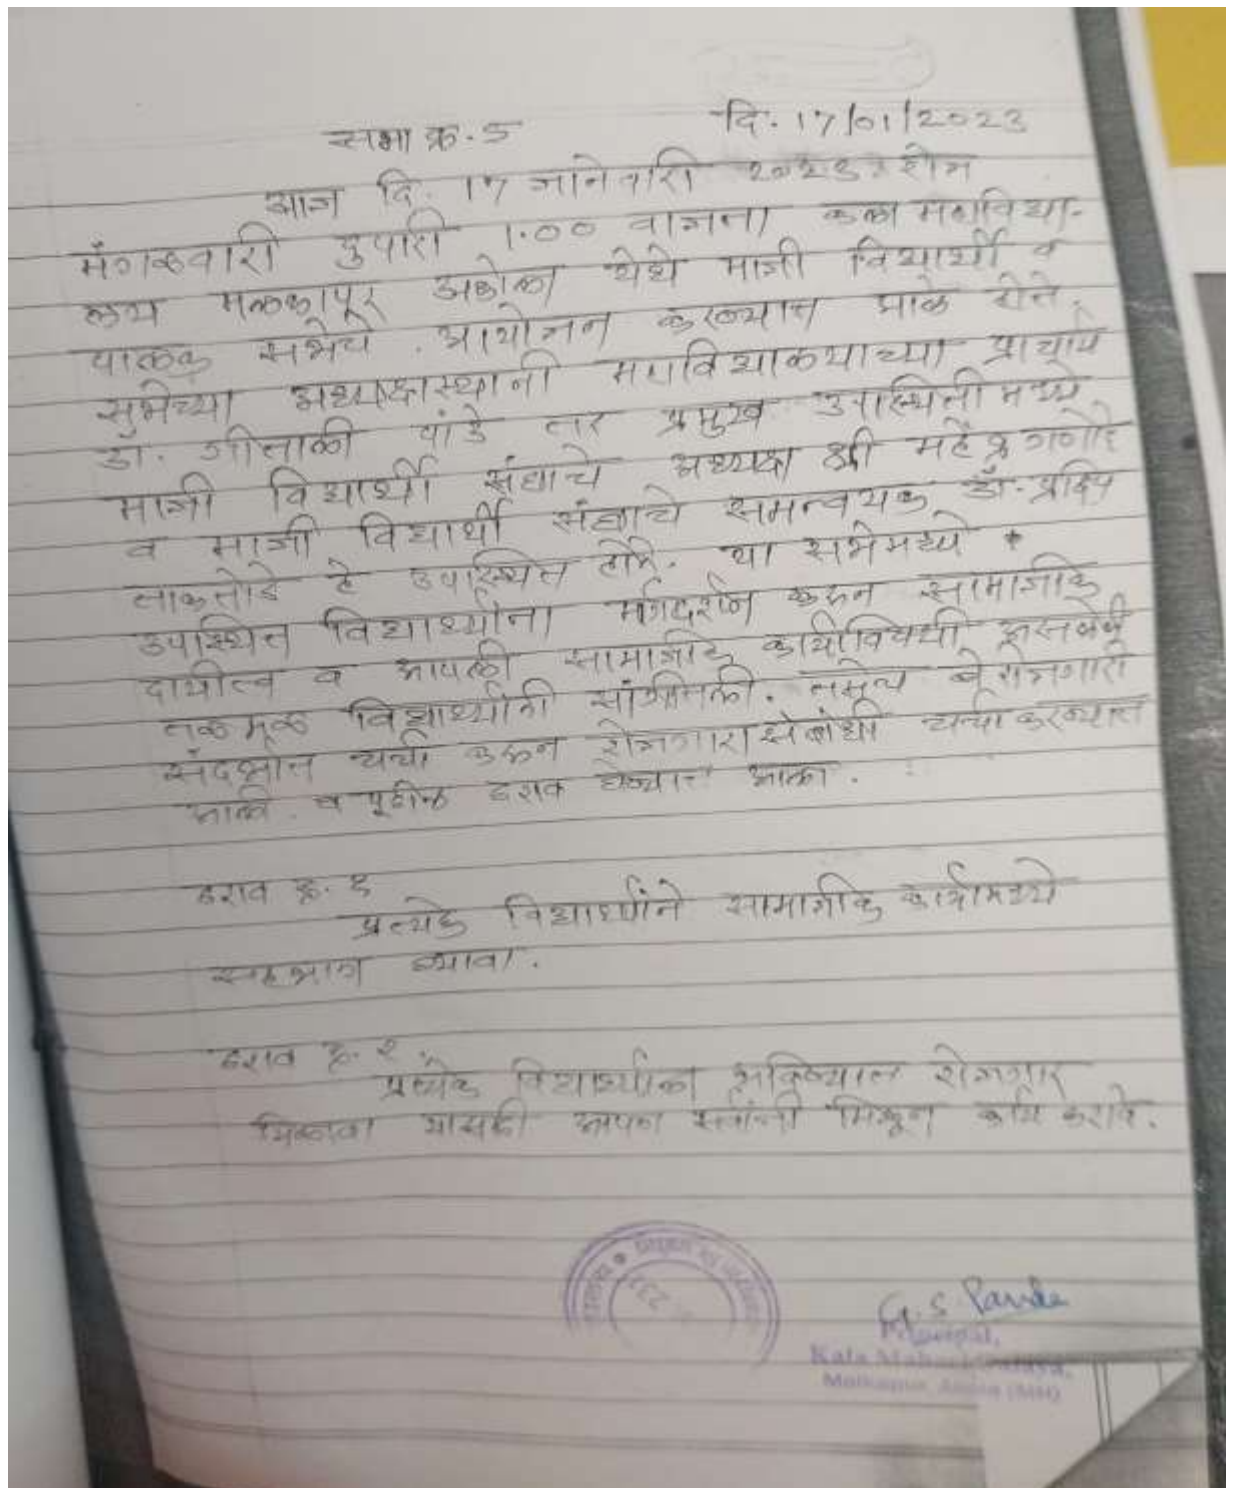 सभा क्र. 5 दि. 17/01/2023
आज दि. 17 जानेवारी रोज
मंगळवारी दुपारी 1.00 वाजता कला महाविद्या-
लय मलकापूर अकोला येथे माजी विद्यार्थी व
पालक सभेचे आयोजन करण्यात आले होते.
सभेच्या अध्यक्षस्थानी महाविद्यालयाच्या प्राचार्य
डॉ. गीताली पांडे तर प्रमुख उपस्थितीमध्ये
माजी विद्यार्थी संघाचे अध्यक्ष श्री महेंद्र
व माजी विद्यार्थी संघाचे समन्वयक डॉ. प्रदिप
ताकतोडे हे उपस्थित होते. या सभेमध्ये
उपस्थित विद्यार्थ्यांना मार्गदर्शन करून सामाजीक
दायीत्व व आपली सामाजीक कार्याविषयी असलेली
तळमळ विद्यार्थ्यांनी सांगीतली. तसेच बेरोजगारी
संदर्भात चर्चा करून रोजगारासंबंधी चर्चा करण्यात
आली व पूढील ठराव घेण्यात आला.
ठराव क्र. १
प्रत्येक विद्यार्थ्याने सामाजीक कार्यामध्ये
सहभाग घ्यावा.
ठराव क्र. २
प्रत्येक विद्यार्थ्याला भविष्यात रोजगार
मिळावा यासाठी आपण सर्वांनी मिळून कार्य करावे.
G. S. Pande
Principal,
Kala Mahavidyalaya,
Malkapur, Akola (MH)